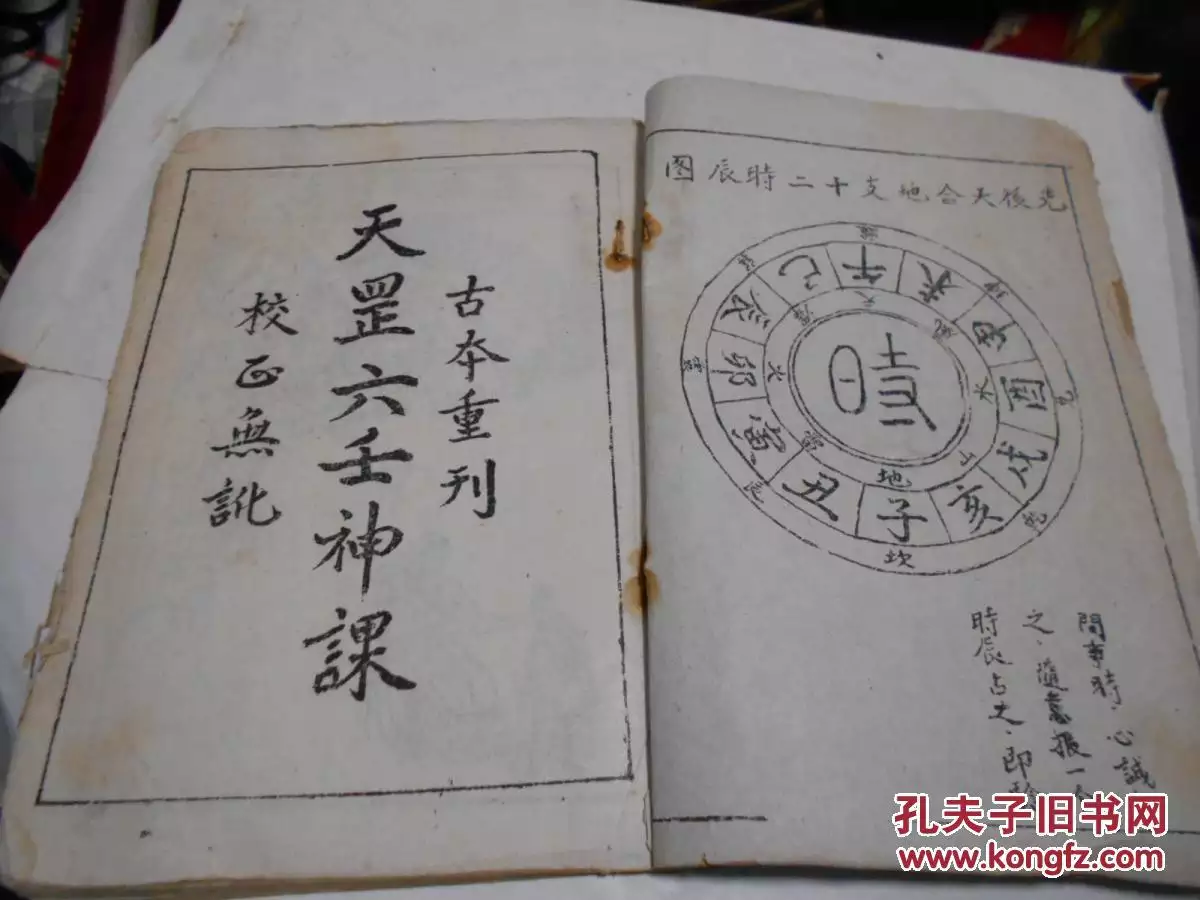 古本重刊
天罡六壬神課
校正無訛
先後天合地支十二時辰图
午
未
申
酉
戌
亥
子
丑
寅
卯
辰
巳
天
水
山
地
火
坎
問事時、心誠
之、隨意報一个
時辰占之、即
孔夫子旧书网
www.kongfz.com